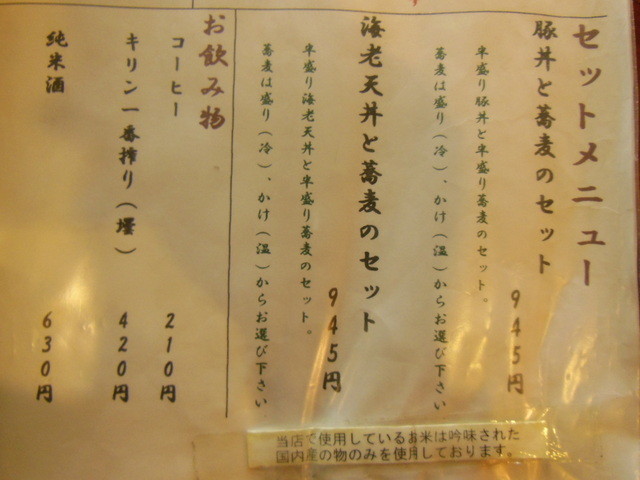 セットメニュー
豚丼と蕎麦のセット
945円
半盛り豚丼と半盛り蕎麦のセット。
蕎麦は盛り(冷)、かけ(温)からお選び下さい
海老天丼と蕎麦のセット
945円
半盛り海老天丼と半盛り蕎麦のセット。
蕎麦は盛り(冷)、かけ(温)からお選び下さい
お飲み物
コーヒー 210円
キリン一番搾り(壜) 420円
純米酒 630円
当店で使用しているお米は吟味された
国内産の物のみを使用しております。